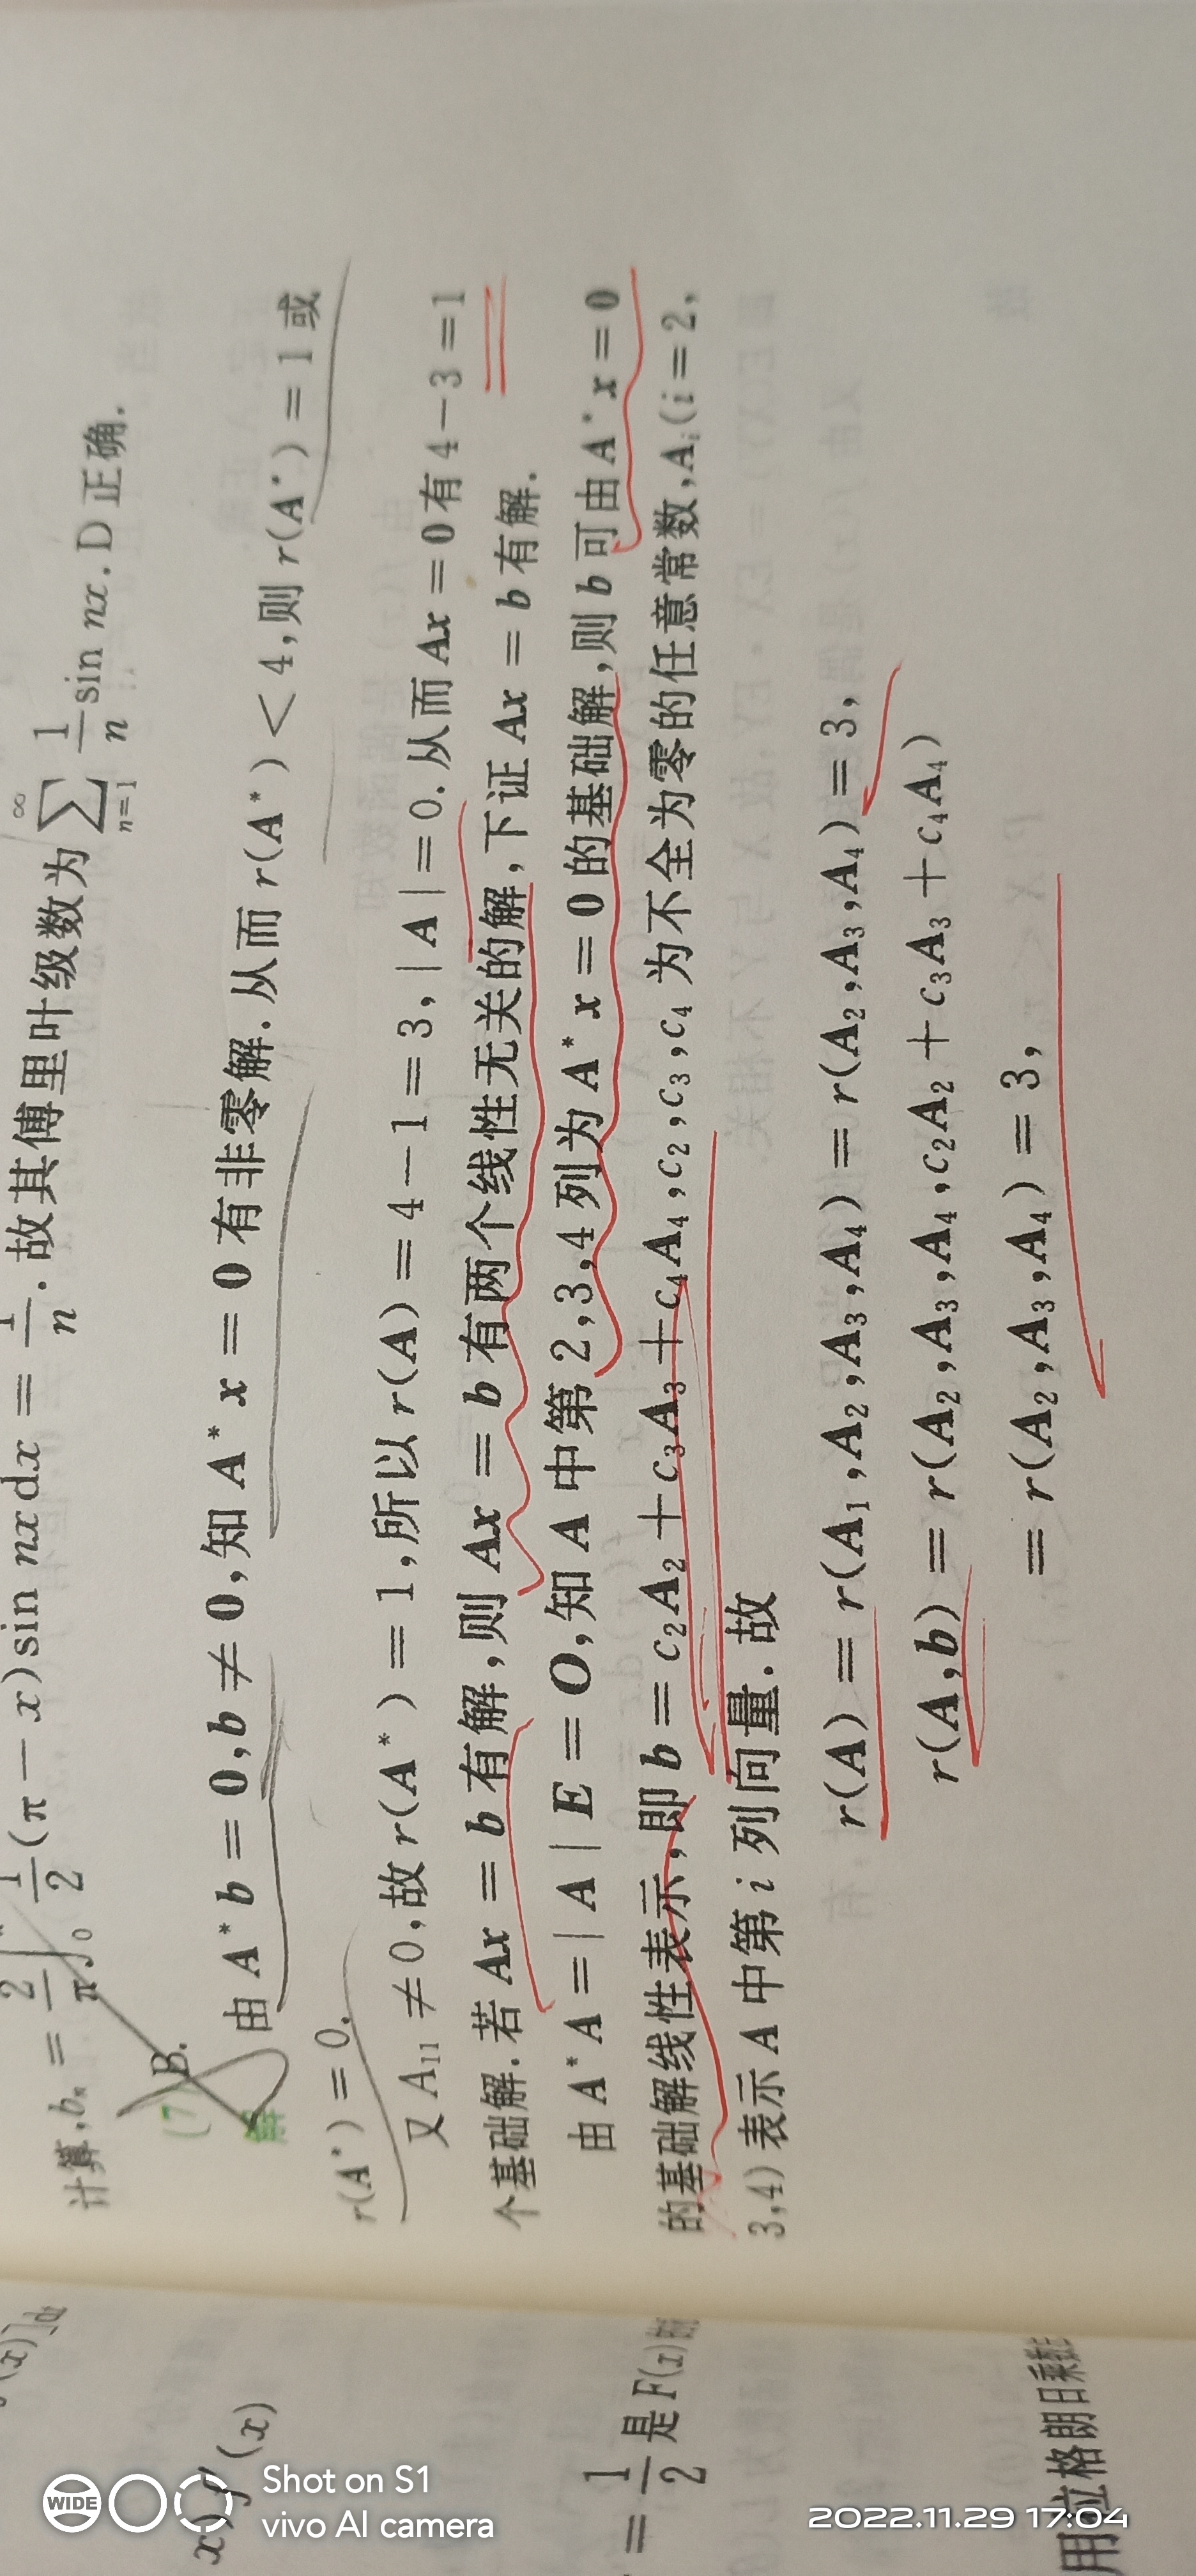 计算,bₙ = 2/π ∫₀ 1/2 (π − x) sin nx dx = 1/n. 故其傅里叶级数为 ∑_{n=1}^{∞} 1/n sin nx. D 正确.
(7) B.
解 由 A*b = 0, b ≠ 0, 知 A*x = 0 有非零解. 从而 r(A*) < 4, 则 r(A*) = 1 或
r(A*) = 0.
又 A₁₁ ≠ 0, 故 r(A*) = 1, 所以 r(A) = 4 − 1 = 3, |A| = 0. 从而 Ax = 0 有 4 − 3 = 1
个基础解. 若 Ax = b 有解, 则 Ax = b 有两个线性无关的解, 下证 Ax = b 有解.
由 A*A = |A|E = O, 知 A 中第 2,3,4 列为 A*x = 0 的基础解, 则 b 可由 A*x = 0
的基础解线性表示, 即 b = c₂A₂ + c₃A₃ + c₄A₄, c₂, c₃, c₄ 为不全为零的任意常数, Aᵢ(i = 2,
3,4) 表示 A 中第 i 列向量. 故
r(A) = r(A₁, A₂, A₃, A₄) = r(A₂, A₃, A₄) = 3,
r(A, b) = r(A₂, A₃, A₄, c₂A₂ + c₃A₃ + c₄A₄)
= r(A₂, A₃, A₄) = 3,
(x)
= 1/2 是 F(x) 的
用拉格朗日乘数
WIDE
Shot on S1
vivo AI camera
2022.11.29 17:04